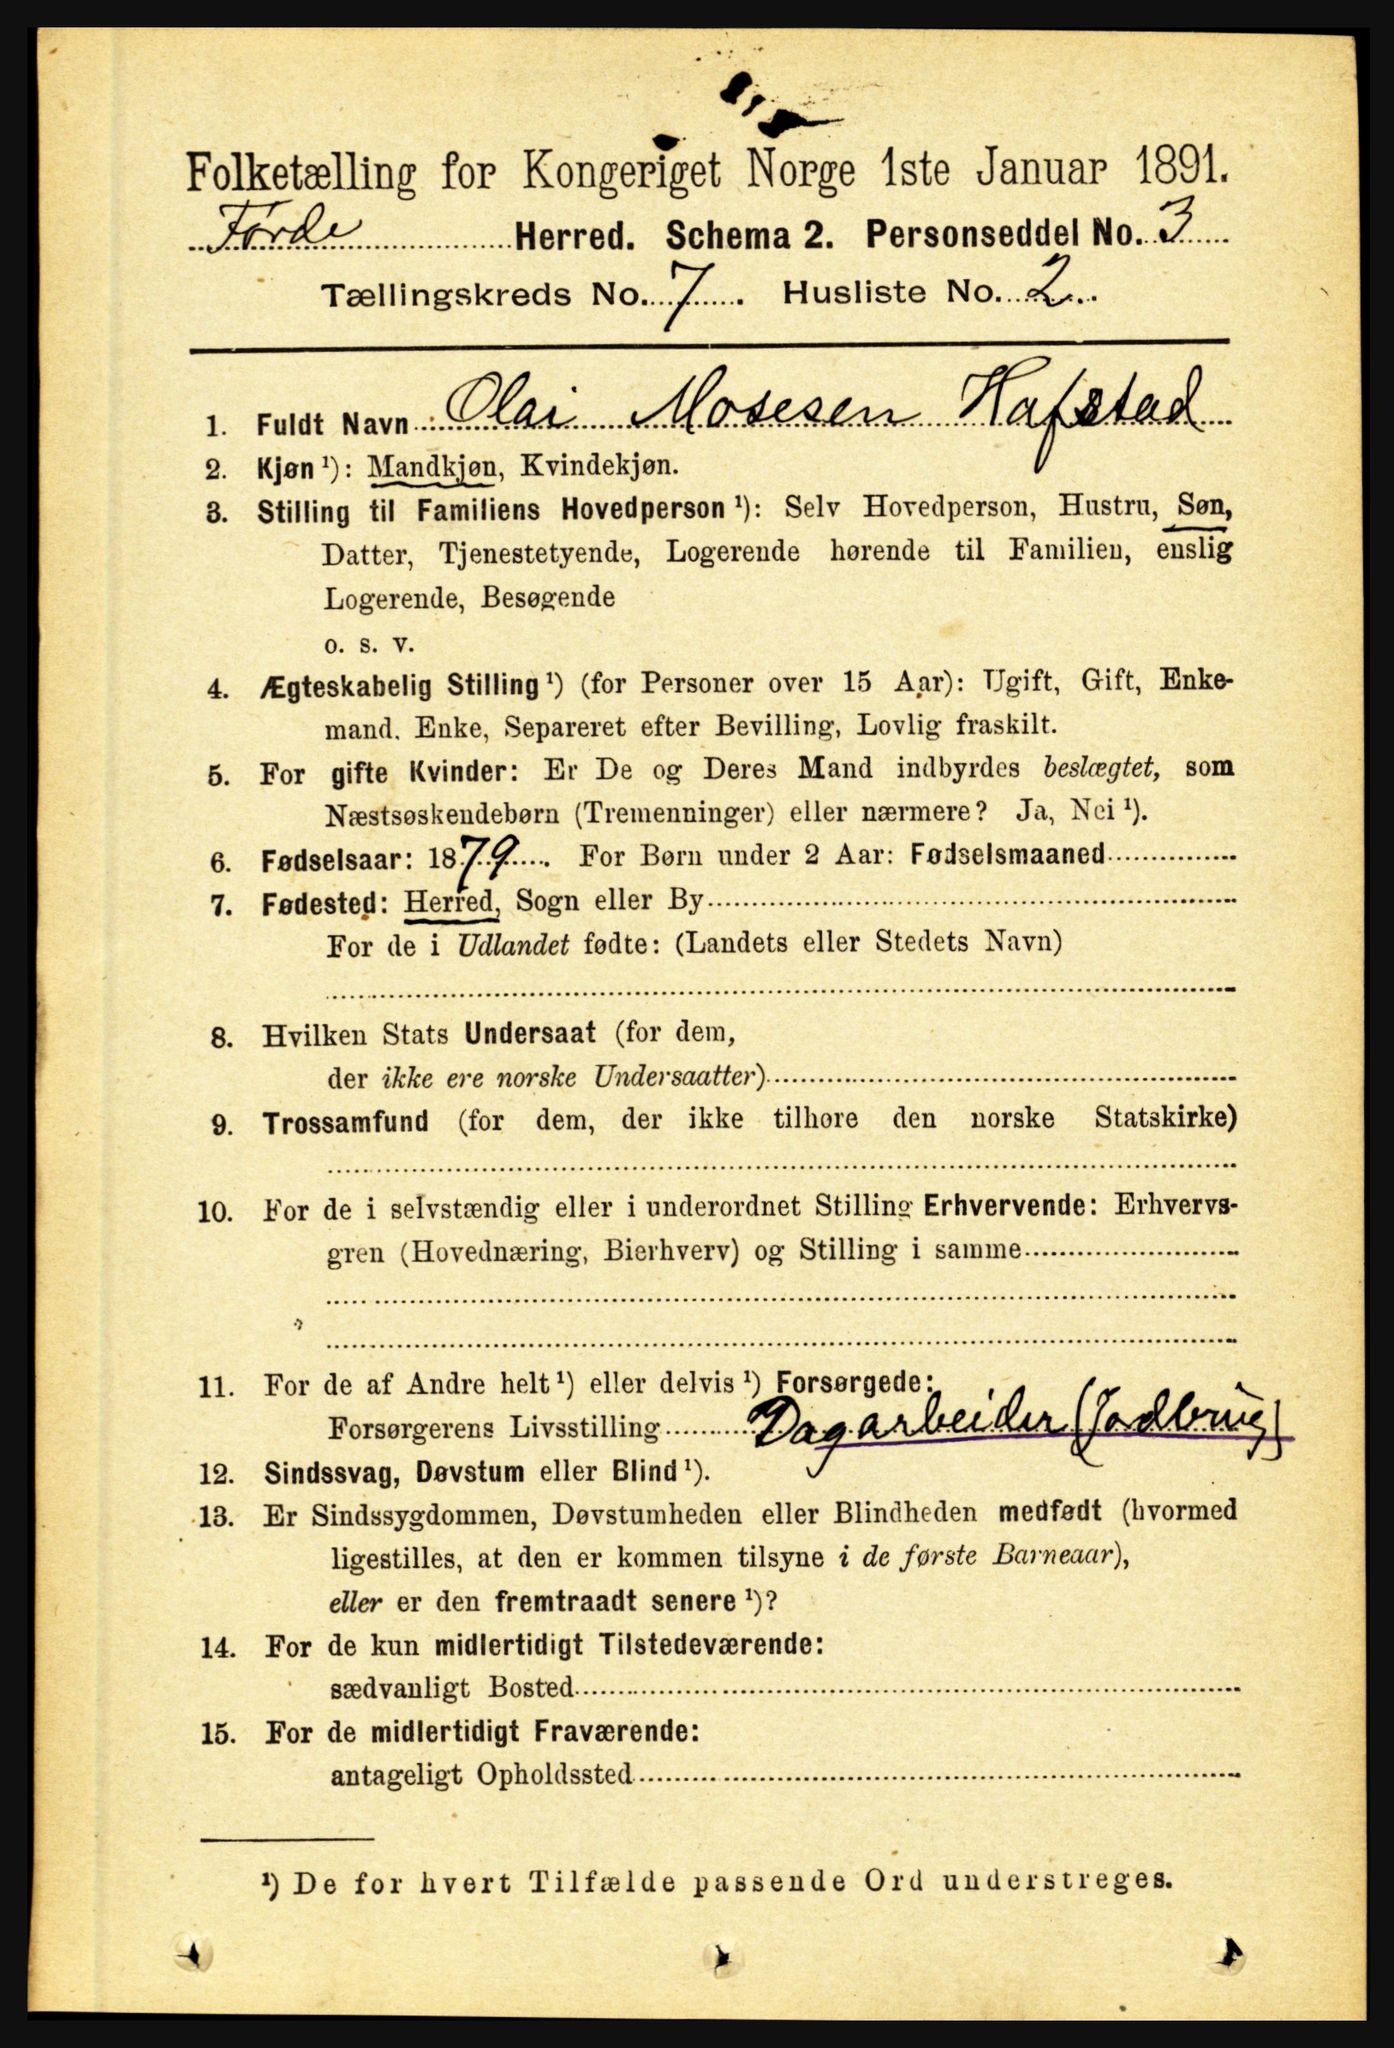 Folketælling for Kongeriget Norge 1ste Januar 1891.
Førde Herred. Schema 2. Personseddel No. 3
Tællingskreds No. 7. Husliste No. 2.
1. Fuldt Navn: Olai Mosesen Hafstad
2. Kjøn ¹): Mandkjøn, Kvindekjøn.
3. Stilling til Familiens Hovedperson ¹): Selv Hovedperson, Hustru, Søn,
Datter, Tjenestetyende, Logerende hørende til Familien, enslig
Logerende, Besøgende
o. s. v.
4. Ægteskabelig Stilling ¹) (for Personer over 15 Aar): Ugift, Gift, Enke-
mand. Enke, Separeret efter Bevilling, Lovlig fraskilt.
5. For gifte Kvinder: Er De og Deres Mand indbyrdes beslægtet, som
Næstsøskendebørn (Tremenninger) eller nærmere? Ja, Nei ¹).
6. Fødselsaar: 1879. For Børn under 2 Aar: Fødselsmaaned
7. Fødested: Herred, Sogn eller By
For de i Udlandet fødte: (Landets eller Stedets Navn)
8. Hvilken Stats Undersaat (for dem,
der ikke ere norske Undersaatter)
9. Trossamfund (for dem, der ikke tilhøre den norske Statskirke)
10. For de i selvstændig eller i underordnet Stilling Erhvervende: Erhvervs-
gren (Hovednæring, Bierhverv) og Stilling i samme
11. For de af Andre helt ¹) eller delvis ¹) Forsørgede:
Forsørgerens Livsstilling Dagarbeider (Jordbrug)
12. Sindssvag, Døvstum eller Blind ¹).
13. Er Sindssygdommen, Døvstumheden eller Blindheden medfødt (hvormed
ligestilles, at den er kommen tilsyne i de første Barneaar),
eller er den fremtraadt senere ¹)?
14. For de kun midlertidigt Tilstedeværende:
sædvanligt Bosted
15. For de midlertidigt Fraværende:
antageligt Opholdssted
¹) De for hvert Tilfælde passende Ord understreges.